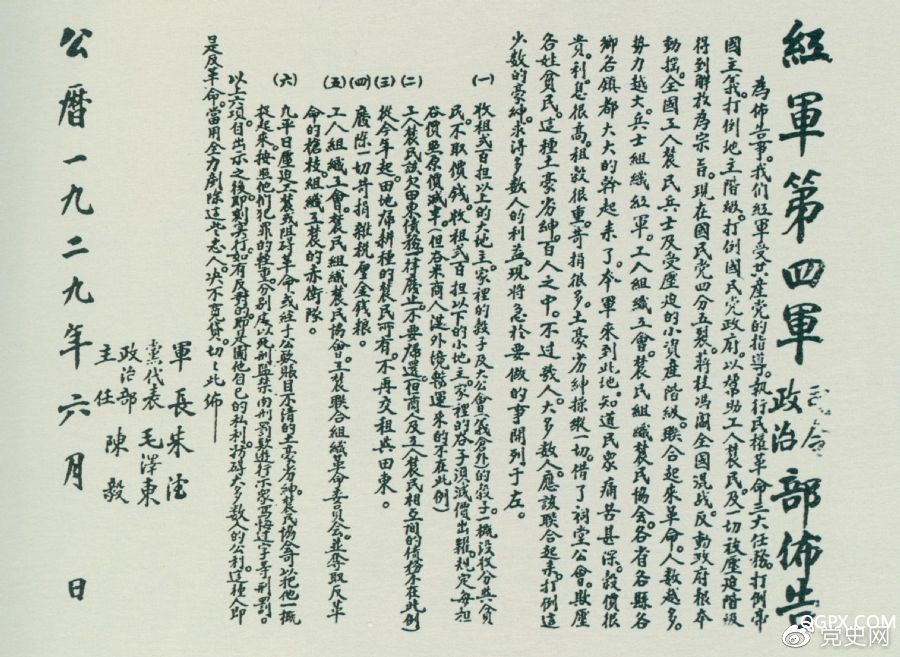 紅軍第四軍司令部政治部佈告
為佈告事。我們紅軍受共產党的指導。執行民權革命三大任務。打倒帝
國主義。打倒地主階級。打倒國民党政府。以幫助工人農民。及一切被壓迫階級
得到解放為宗旨。現在國民党四分五裂。蔣桂馮閻全國混战。反動政府根本
動摇。全國工人農民兵士及受壓迫的小資產階級。联合起來革命。人数越多。
勢力越大。兵士組織紅軍。工人組織工會。農民組織農民協会。各省各縣各
鄉各鎮都大大的幹起来了。本軍来到此地。知道民衆痛苦甚深。穀價很
貴。利息很高。租穀很重。苛捐很多。土豪劣紳操縱一切。借了祠堂公會。欺壓
各姓貧民。這種土豪劣紳。百人之中。不过数人。大多数人。應該联合起来。打倒這
少数的豪紳。求得多数人的利益。現将急於要做的事開列于左。
(一) 收租弍百担以上的大地主。家裡的穀子及大公會(義倉外)的穀子。一概没收分與貧
民。不取價錢。收租弍百担以下的小地主。家裡的谷子須減價出糶。規定每担
谷價照原價減半。(但谷米商人從外境粜運来的不在此例)
(二) 工人農民該欠田東債務。一律廢止。不要歸還。(但商人及工人農民相互間的債務不在此例)
(三) 從今年起。田地歸耕種的農民所有。不再交租與田東。
(四) 廢除一切苛捐雜税厘金錢糧。
(五) 工人組織工會。農民組織農民協會。工農联合組織革命委員会。並奪取反革
命的槍枝組織工農的赤衛隊。
(六) 凡平日壓迫工農或阻碍革命。或経手公款賬目不清的土豪劣紳。農民協会可以把他一概
捉起来。按照他们犯罪的輕重。分别處以死刑監禁肉刑罰款遊行示眾写悔过字等刑罰。
以上六項自出示之後。即刻实行。如有反對的。即是圖他自己的私利。妨碍大多数人的公利。這種人即
是反革命。當用全力剷除這些惡人。决不寬貸。切切此佈
軍長 朱德
黨代表 毛澤東
政治部主任 陳毅
公曆一九二九年六月 日
QGPX.COM
党史网